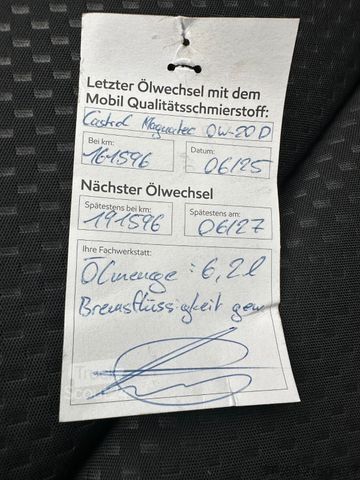 Letzter Ölwechsel mit dem
Mobil Qualitätsschmierstoff:
Castrol Magnatec 0W-20 D
Bei km: Datum:
161596 06/25
Nächster Ölwechsel
Spätestens bei km: Spätestens am:
191596 06/27
Ihre Fachwerkstatt:
Ölmenge : 6,2l
Bremsflüssigkeit gew